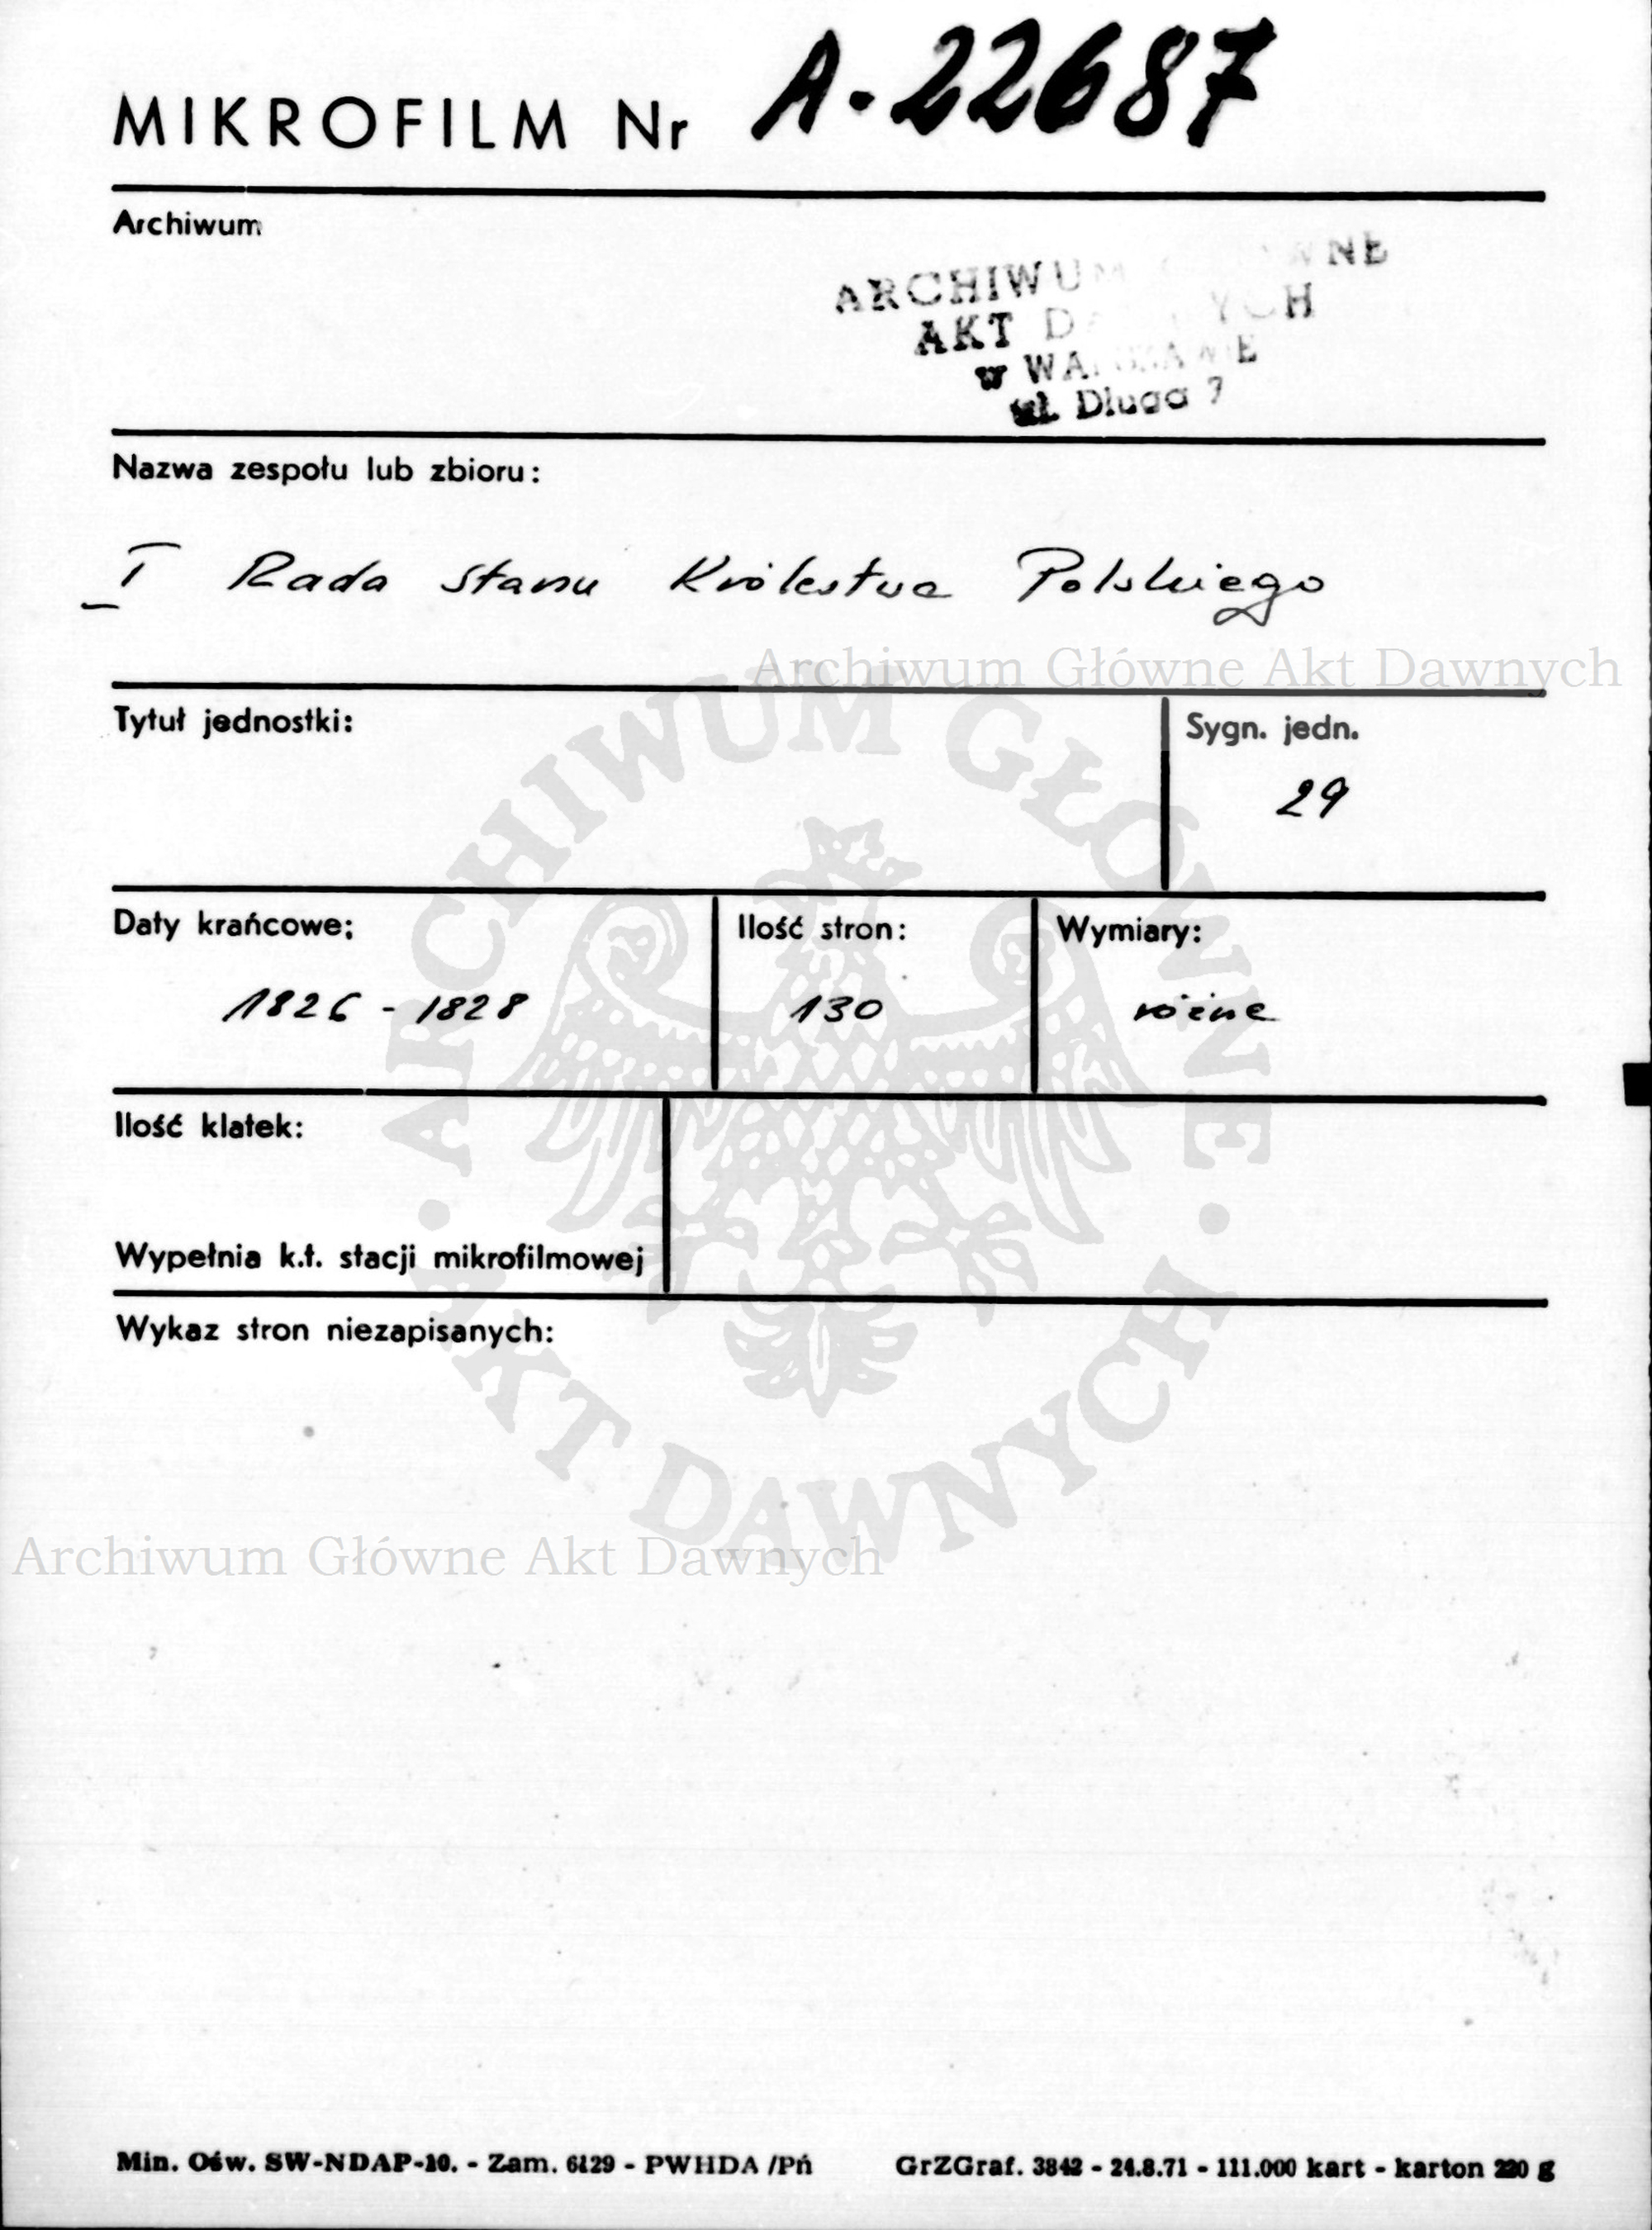 MIKROFILM Nr A-22687
Archiwum
ARCHIWUM GŁÓWNE
AKT DAWNYCH
w WARSZAWIE
ul. Długa 7
Nazwa zespołu lub zbioru:
I Rada Stanu Królestwa Polskiego
Archiwum Główne Akt Dawnych
Tytuł jednostki:
Sygn. jedn.
29
Daty krańcowe;
Ilość stron:
Wymiary:
1826 - 1828
130
różne
Ilość klatek:
Wypełnia k.t. stacji mikrofilmowej
Wykaz stron niezapisanych:
ARCHIWUM GŁÓWNE
AKT DAWNYCH
Archiwum Główne Akt Dawnych
Min. Ośw. SW-NDAP-10. - Zam. 6129 - PWHDA /Pń
GrZGraf. 3842 - 24.8.71 - 111.000 kart - karton 220 g